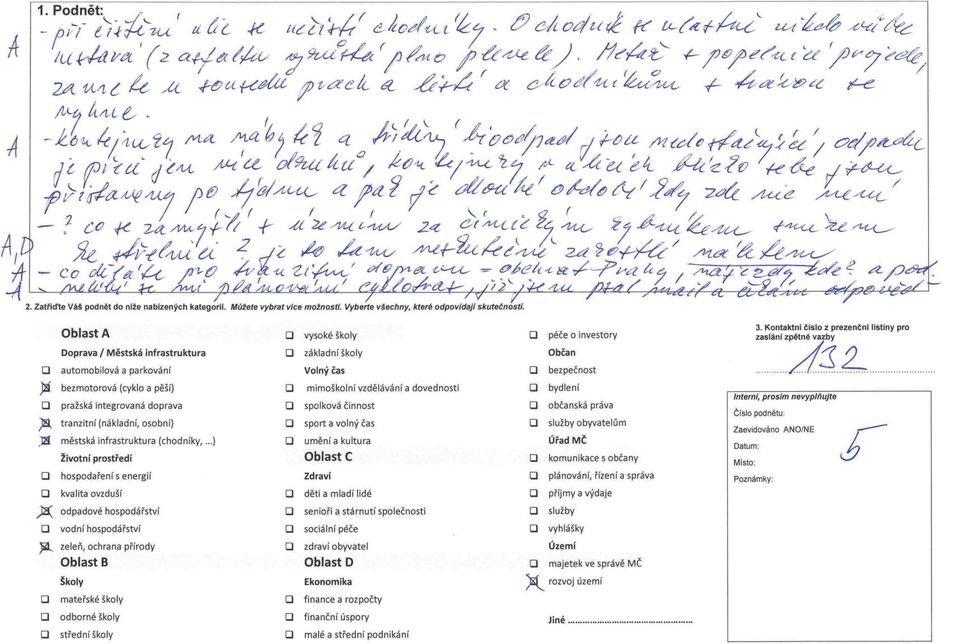 1. Podnět:
- při čištění ulic se nečistí chodníky. O chodník se vlastně nikdo vůbec
A
nestará (z asfaltu vyrůstá plno plevele). Metař s popelnicí projede,
zamete u sousedů prach a listí a chodníkům s trávou se
vyhne.
A
- kontejnery na nábytek a tříděný bioodpad jsou nedostačující, odpadu
je přeci jen více druhů, kontejnery v ulicích blízko sebe jsou
přistaveny po týdnu a pak je dlouhé období kdy zde nic není
A, D
- ? co se zamýšlí s územím za čimickým rybníkem směrem
ke střelnici ? je to tam neskutečně zarostlé náletem
A
- co děláte pro tranzitní dopravu = obchvat Prahy, nájezdy kde? apod.
A
- nelíbí se mi plánování cyklotras, již jsem psal /mail a čekám odpověď-
2. Zatřiďte Váš podnět do níže nabízených kategorií. Můžete vybrat více možností. Vyberte všechny, které odpovídají skutečnosti.
Oblast A
Doprava / Městská infrastruktura
automobilová a parkování
bezmotorová (cyklo a pěší)
pražská integrovaná doprava
tranzitní (nákladní, osobní)
městská infrastruktura (chodníky, ...)
Životní prostředí
hospodaření s energií
kvalita ovzduší
odpadové hospodářství
vodní hospodářství
zeleň, ochrana přírody
Oblast B
Školy
mateřské školy
odborné školy
střední školy
vysoké školy
základní školy
Volný čas
mimoškolní vzdělávání a dovednosti
spolková činnost
sport a volný čas
umění a kultura
Oblast C
Zdraví
děti a mladí lidé
senioři a stárnutí společnosti
sociální péče
zdraví obyvatel
Oblast D
Ekonomika
finance a rozpočty
finanční úspory
malé a střední podnikání
péče o investory
Občan
bezpečnost
bydlení
občanská práva
služby obyvatelům
Úřad MČ
komunikace s občany
plánování, řízení a správa
příjmy a výdaje
služby
vyhlášky
Území
majetek ve správě MČ
rozvoj území
Jiné ................................................
3. Kontaktní číslo z prezenční listiny pro
zaslání zpětné vazby
132
Interní, prosím nevyplňujte
Číslo podnětu:
Zaevidováno ANO/NE
5
Datum:
Místo:
Poznámky: